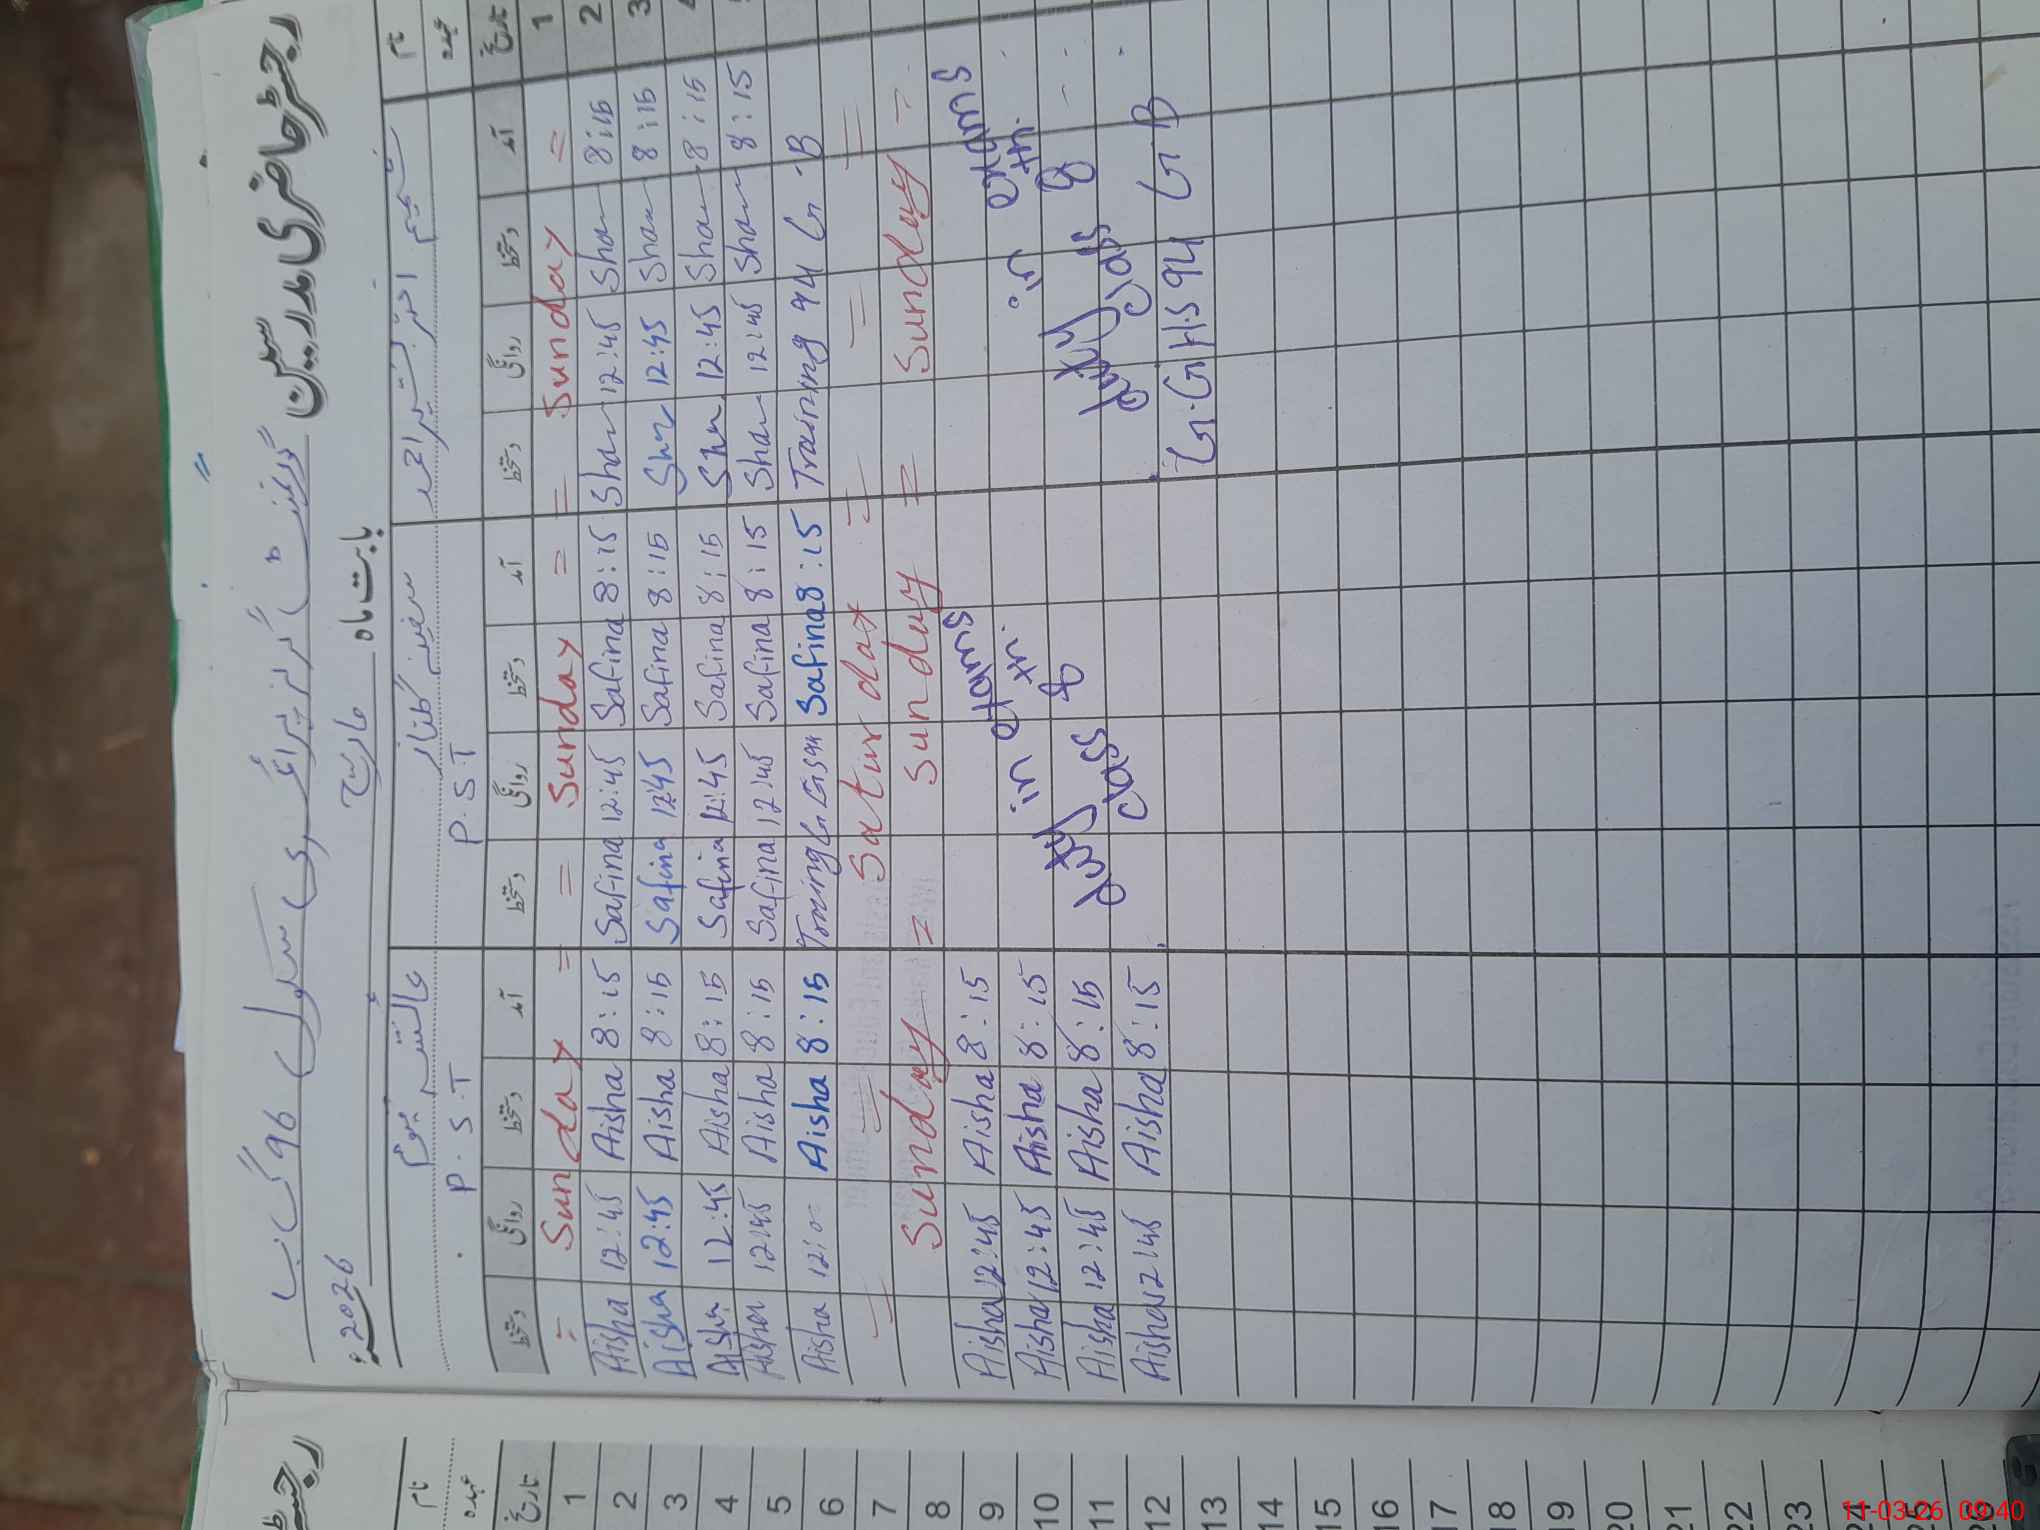 رجسٹر حاضری مدرسین
گورنمنٹ گرلز پرائمری سکول 96 گ ب
بابت ماہ مارچ 2026ء
نام شمیم اختر بشیر احمد سفینہ گلناز
عہدہ P.S.T P.S.T
تاریخ آمد دستخط روانگی دستخط آمد دستخط روانگی دستخط آمد دستخط روانگی دستخط
1 = Sunday = = Sunday = = Sunday =
2 8:15 Shan 12:45 Shan 8:15 Safina 12:45 Safina 8:15 Aisha 12:45 Aisha
3 8:15 Shan 12:45 Shan 8:15 Safina 12:45 Safina 8:15 Aisha 12:45 Aisha
8:15 Shan 12:45 Shan 8:15 Safina 12:45 Safina 8:15 Aisha 12:45 Aisha
8:15 Shan 12:45 Shan 8:15 Safina 12:45 Safina 8:15 Aisha 12:45 Aisha
Training 94 G.B 8:15 Safina 8:15 Aisha 12:00 Aisha
= = = Saturday = =
= Sunday = Sunday = Sunday
duty in exams 8th class duty in exams 8th class 8:15 Aisha 12:45 Aisha
8:15 Aisha 12:45 Aisha
8:15 Aisha 12:45 Aisha
G.G.H.S 94 G B 8:15 Aisha 12:45 Aisha
نام
عہدہ
تاریخ
1
2
3
4
5
6
7
8
9
10
11
12
13
14
15
16
17
18
19
20
21
22
23
24
11-03-26 09:40